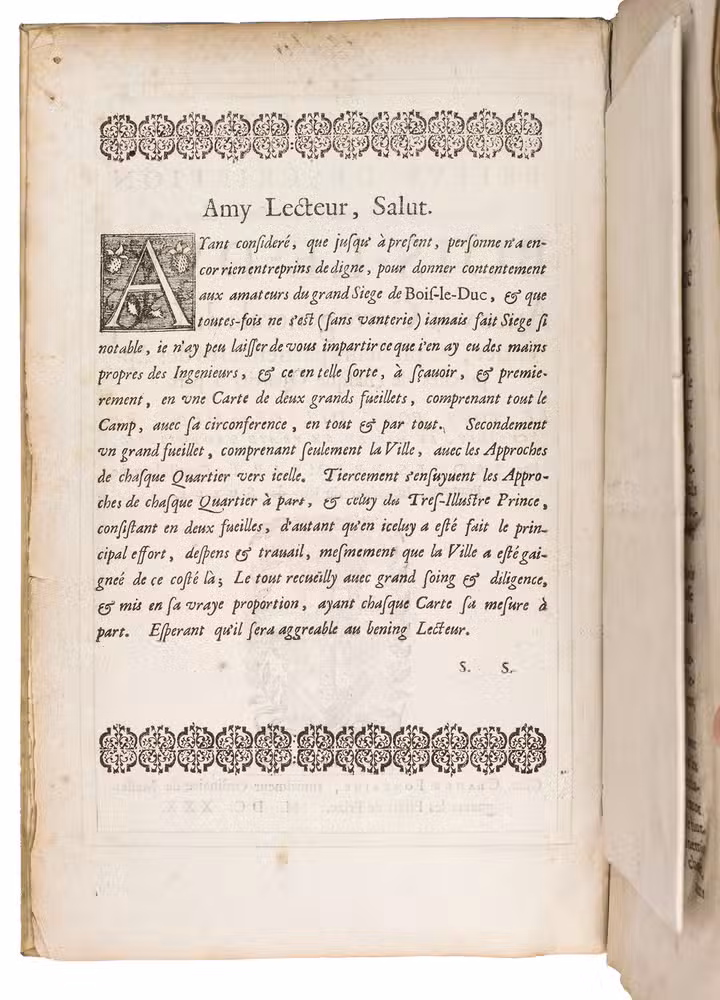 Amy Lecteur, Salut.
AYant conſideré, que juſqu' à preſent, perſonne n'a en-
cor rien entreprins de digne, pour donner contentement
aux amateurs du grand Siege de Boiſ-le-Duc, & que
toutes-fois ne s'eſt (ſans vanterie) iamais fait Siege ſi
notable, ie n'ay peu laiſſer de vous impartir ce que i'en ay eu des mains
propres des Ingenieurs, & ce en telle ſorte, à ſçauoir, & premie-
rement, en vne Carte de deux grands fueillets, comprenant tout le
Camp, auec ſa circonference, en tout & par tout. Secondement
vn grand fueillet, comprenant ſeulement la Ville, auec les Approches
de chaſque Quartier vers icelle. Tiercement s'enſuyuent les Appro-
ches de chaſque Quartier à part, & celuy du Treſ-Illuſtre Prince,
conſiſtant en deux fueilles, d'autant qu'en iceluy a eſté fait le prin-
cipal effort, deſpens & trauail, meſmement que la Ville a eſté gai-
gneé de ce coſté là; Le tout recueilly auec grand ſoing & diligence,
& mis en ſa vraye proportion, ayant chaſque Carte ſa meſure à
part. Eſperant qu'il ſera aggreable au bening Lecteur.
S. S.